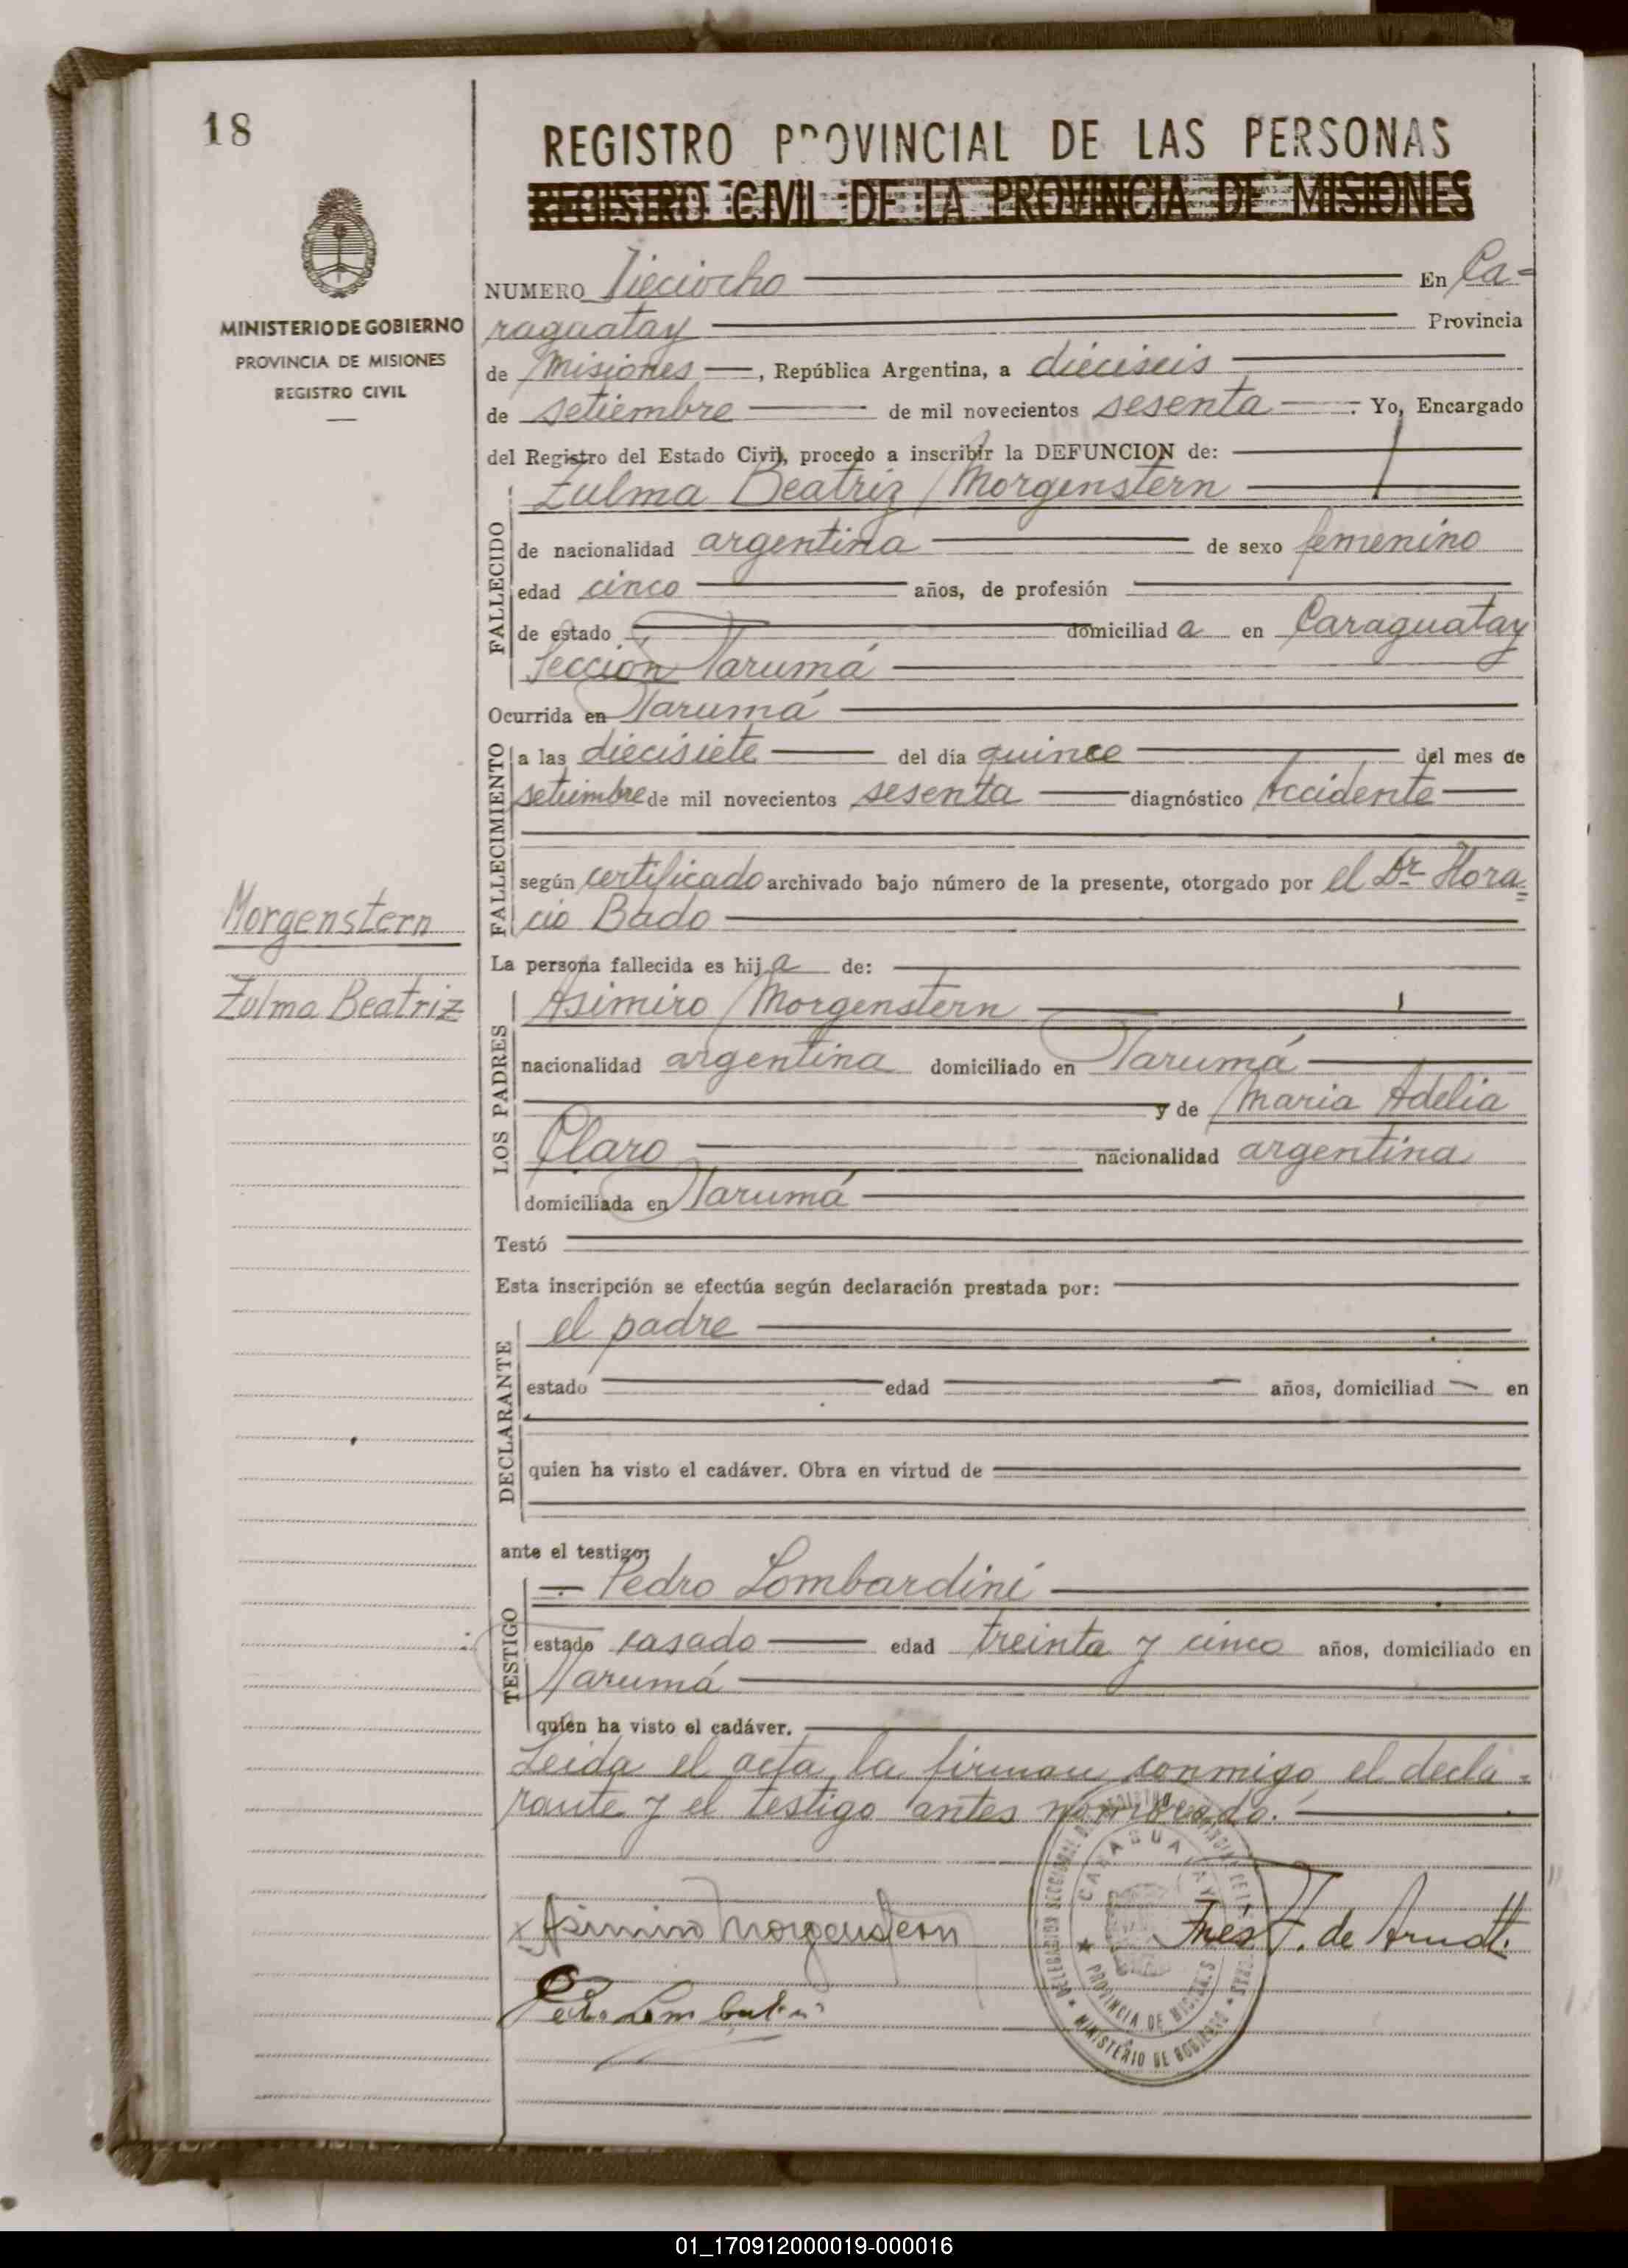 18
REGISTRO PROVINCIAL DE LAS PERSONAS
REGISTRO CIVIL DE LA PROVINCIA DE MISIONES
MINISTERIO DE GOBIERNO
PROVINCIA DE MISIONES
REGISTRO CIVIL
NUMERO Dieciocho En Ca-
raguatay Provincia
de Misiones, República Argentina, a dieciseis
de setiembre de mil novecientos sesenta. Yo, Encargado
del Registro del Estado Civil, procedo a inscribir la DEFUNCION de:
Zulma Beatriz Morgenstern
FALLECIDO
de nacionalidad argentina de sexo femenino
edad cinco años, de profesión
de estado domiciliad a en Caraguatay
Sección Tarumá
Ocurrida en Tarumá
FALLECIMIENTO
a las diecisiete del día quince del mes de
setiembre de mil novecientos sesenta diagnóstico Accidente
según certificado archivado bajo número de la presente, otorgado por el Dr. Hora=
cio Bado
Morgenstern
Zulma Beatriz
La persona fallecida es hij a de:
LOS PADRES
Asimiro Morgenstern
nacionalidad argentina domiciliado en Tarumá
y de Maria Adelia
Claro nacionalidad argentina
domiciliada en Tarumá
Testó
Esta inscripción se efectúa según declaración prestada por:
DECLARANTE
el padre
estado edad años, domiciliad en
quien ha visto el cadáver. Obra en virtud de
ante el testigo:
TESTIGO
Pedro Lombardini
estado casado edad treinta y cinco años, domiciliado en
Tarumá
quien ha visto el cadáver.
Leida el acta, la firman conmigo el decla-
rante y el testigo antes nombrado.
CARAGUATAY
PROVINCIA DE MISIONES
MINISTERIO DE GOBIERNO
Asimiro Morgenstern
Inés T. de Arndt.
Pedro Lombardini
01_170912000019-000016